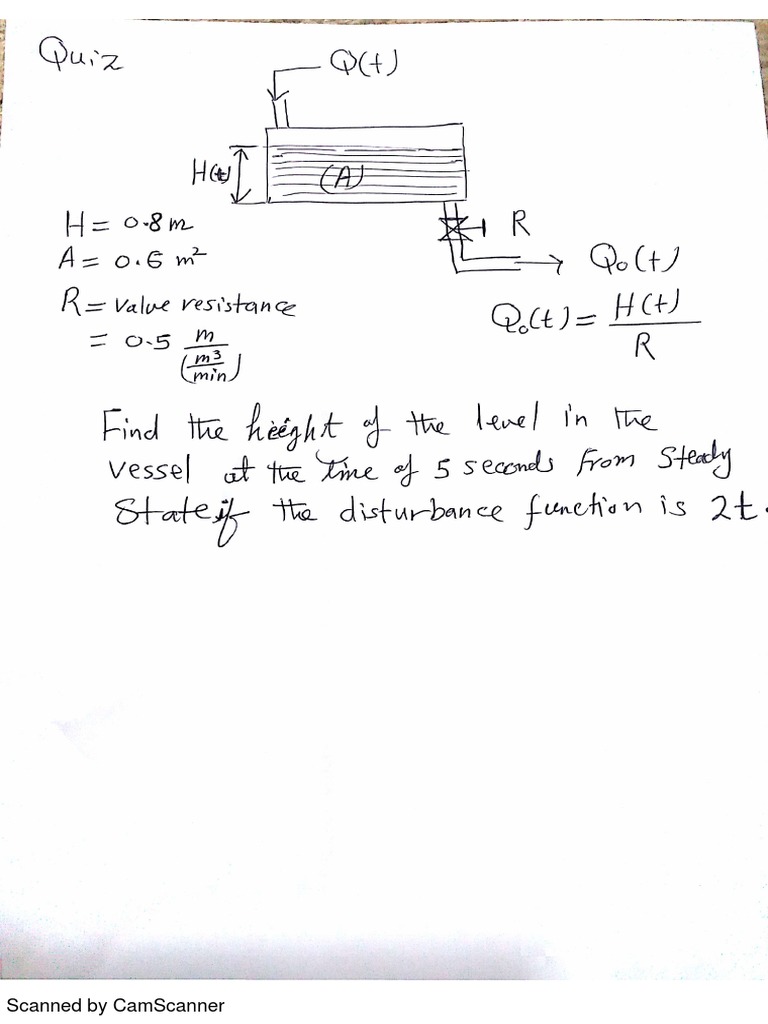 Quiz
Q(t)
H(t)
(A)
H = 0.8 m
R
A = 0.6 m²
Qo(t)
R = value resistance
Qo(t) = H(t) / R
= 0.5 m / (m³/min)
Find the height of the level in the
vessel at the time of 5 seconds from steady
State if the disturbance function is 2t.
Scanned by CamScanner